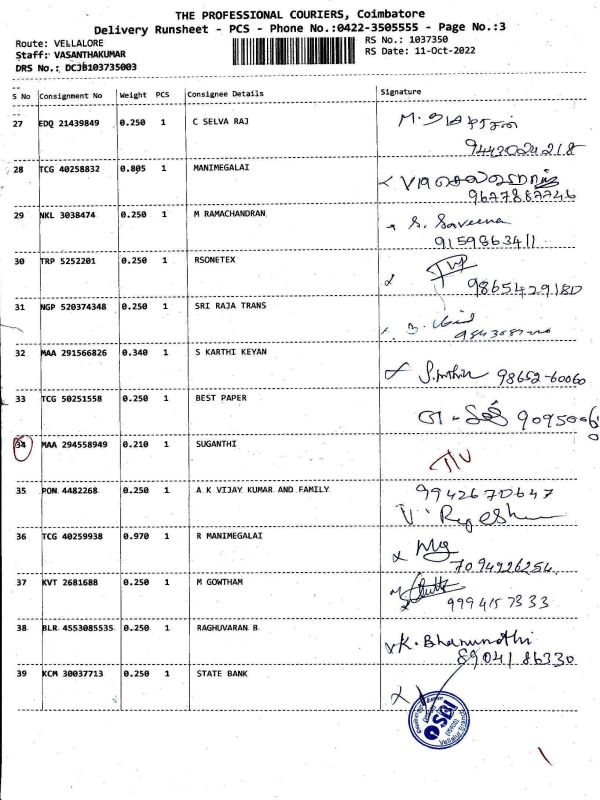 THE PROFESSIONAL COURIERS, Coimbatore
Delivery Runsheet - PCS - Phone No.:0422-3505555 - Page No.:3
Route: VELLALORE
RS No.: 1037350
Staff: VASANTHAKUMAR
RS Date: 11-Oct-2022
DRS No.: DCJB103735003
S No Consignment No Weight PCS Consignee Details Signature
27 EDQ 21439849 0.250 1 C SELVA RAJ
9443024218
28 TCG 40258832 0.805 1 MANIMEGALAI
9677887746
29 NKL 3038474 0.250 1 M RAMACHANDRAN S. Saveena
9159863411
30 TRP 5252201 0.250 1 RSONETEX
31 NGP 520374348 0.250 1 SRI RAJA TRANS
32 MAA 291566826 0.340 1 S KARTHI KEYAN
98652-60060
33 TCG 50251558 0.250 1 BEST PAPER
34 MAA 294558949 0.210 1 SUGANTHI
35 PON 4482268 0.250 1 A K VIJAY KUMAR AND FAMILY 9942670647
36 TCG 40259938 0.970 1 R MANIMEGALAI
7094926254
37 KVT 2681688 0.250 1 M GOWTHAM
9994157333
38 BLR 4553085535 0.250 1 RAGHUVARAN B K. Bhanumathi
8904186330
39 KCM 30037713 0.250 1 STATE BANK
SBI